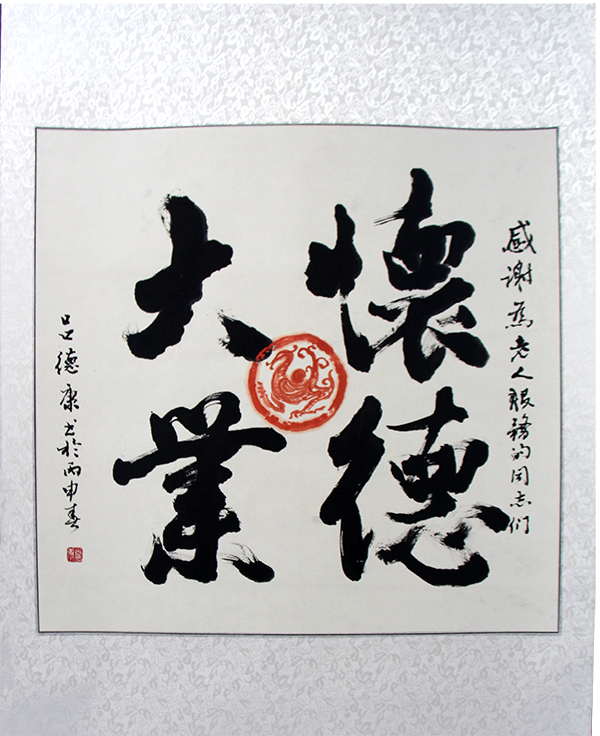 感谢為老人服務的同志们
懷德
大業
吕德康书於丙申春